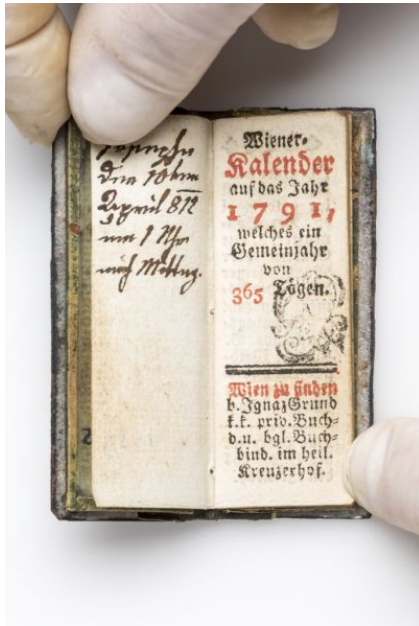 Josepha
den 10ten
April 812
um 1 Uhr
nach Mittag.
Wiener-
Kalender
auf das Jahr
1791,
welches ein
Gemeinjahr
von
365 Tägen.
Wien zu finden
b. Ignaz Grund
k.k. priv. Buch-
d.u. bgl. Buch-
bind. im heil.
Kreuzerhof.